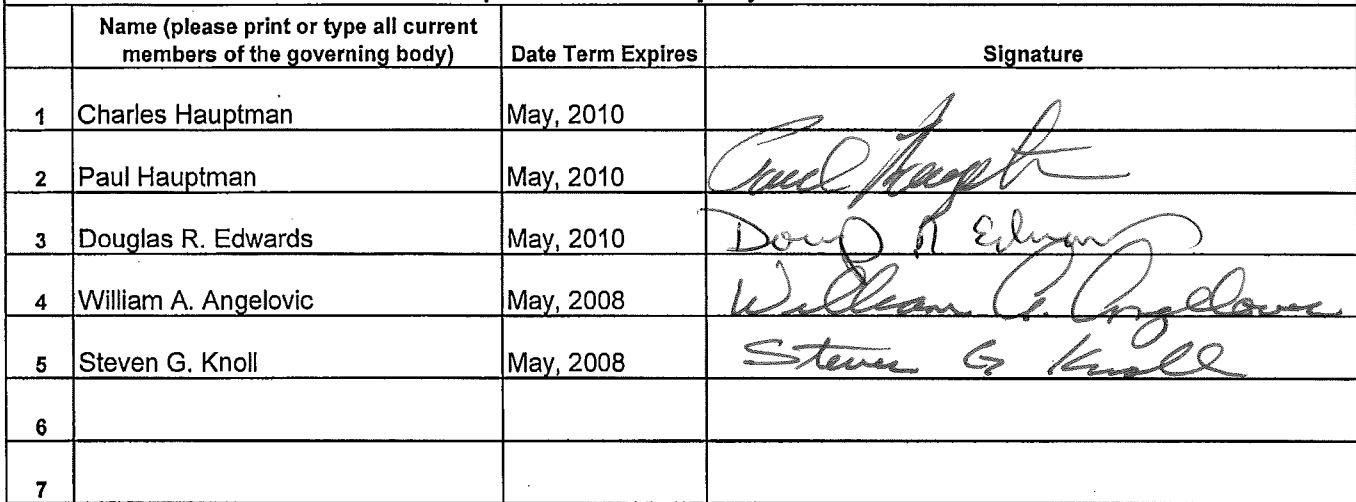 Name (please print or type all current
members of the governing body)
Date Term Expires
Signature
1 Charles Hauptman May, 2010
2 Paul Hauptman May, 2010 Paul Hauptman
3 Douglas R. Edwards May, 2010 Doug R Edwards
4 William A. Angelovic May, 2008 William A. Angelovic
5 Steven G. Knoll May, 2008 Steven G Knoll
6
7